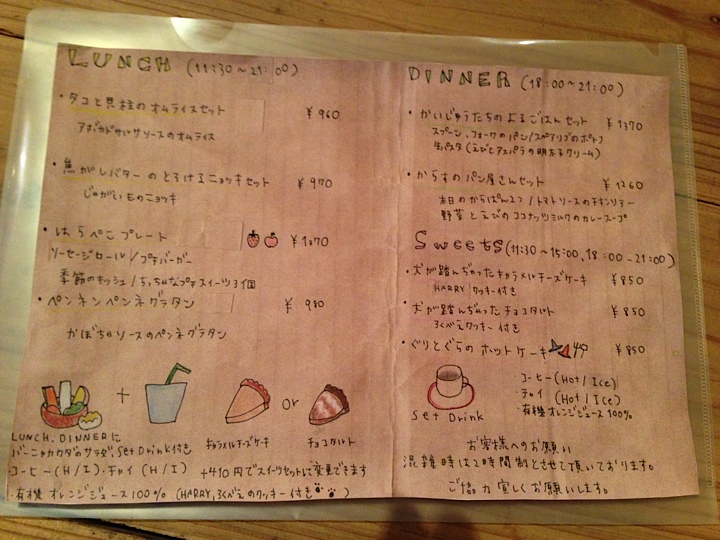 LUNCH (11:30～21:00)
・タコと貝柱のオムライスセット ￥960
アボカドサルサソースのオムライス
・焦がしバターのとろけるニョッキセット ￥970
じゃがいものニョッキ
・はらぺこプレート ￥1370
ソーセージロール/プチバーガー
季節のキッシュ/ちっちゃなプチスイーツ3個
・ペンネンペンネグラタン ￥980
かぼちゃソースのペンネグラタン
+ or
キャラメルチーズケーキ チョコタルト
LUNCH, DINNERに
バーニャカウダのサラダ, Set Drink付き
コーヒー(H/I)・チャイ(H/I)
+410円でスイーツセットに変更できます
・有機オレンジジュース100% (HARRY, ろくべえのクッキー付き)
DINNER (18:00～21:00)
・かいじゅうたちのよるごはんセット ￥1370
スプーン、フォークのパン/スペアリブのポトフ
生パスタ(えびとアスパラの明太クリーム)
・からすのパン屋さんセット ￥1260
本日のからすぱん2コ/トマトソースのチキンソテー
野菜とえびのココナッツミルクのカレースープ
Sweets(11:30～15:00, 18:00-21:00)
・犬が踏んぢゃったキャラメルチーズケーキ ￥850
HARRYクッキー付き
・犬が踏んぢゃったチョコタルト ￥850
ろくべえクッキー付き
・ぐりとぐらのホットケーキ ￥850
Set Drink
コーヒー(Hot/Ice)
チャイ (Hot/Ice)
・有機オレンジジュース100%
お客様へのお願い
混雑時は2時間制とさせて頂いております。
ご協力宜しくお願いします。